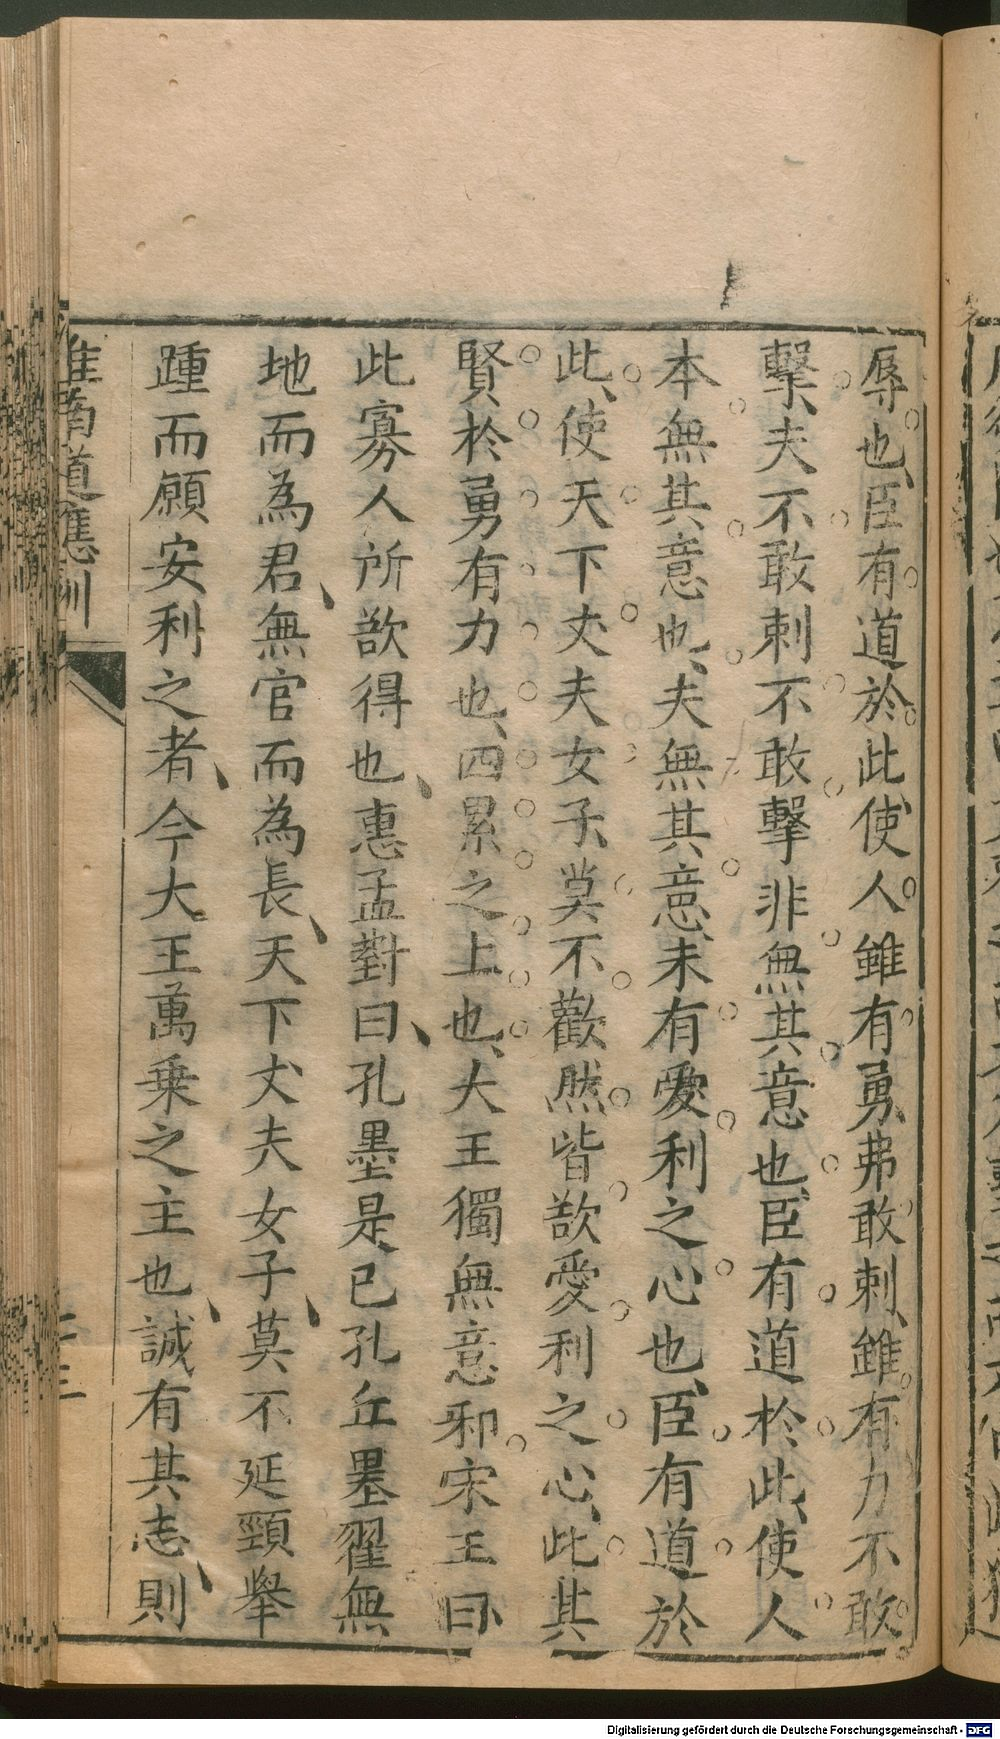 辱也、臣有道於此、使人雖有勇、弗敢刺、雖有力不敢
擊、夫不敢刺不敢擊非無其意也、臣有道於此、使人
本無其意也、夫無其意、未有愛利之心也、臣有道於
此、使天下丈夫女子、莫不歡然皆欲愛利之心、此其
賢於勇有力也、四累之上也、大王獨無意邪宋王曰、
此寡人所欲得也、惠孟對曰、孔墨是、已孔丘墨翟無
地而為君、無官而為長、天下丈夫女子、莫不延頸舉
踵而願安利之者、今大王萬乗之主也、誠有其志、則
淮南道應訓
二三
Digitalisierung gefördert durch die Deutsche Forschungsgemeinschaft - DFG